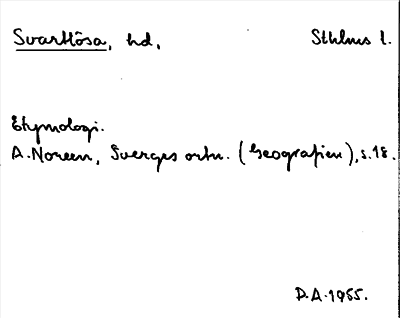 Svartlösa, hd, Sthlms l.
Etymologi.
A. Noreen, Sveriges ortn. (Geografien), s. 18.
D.A. 1955.